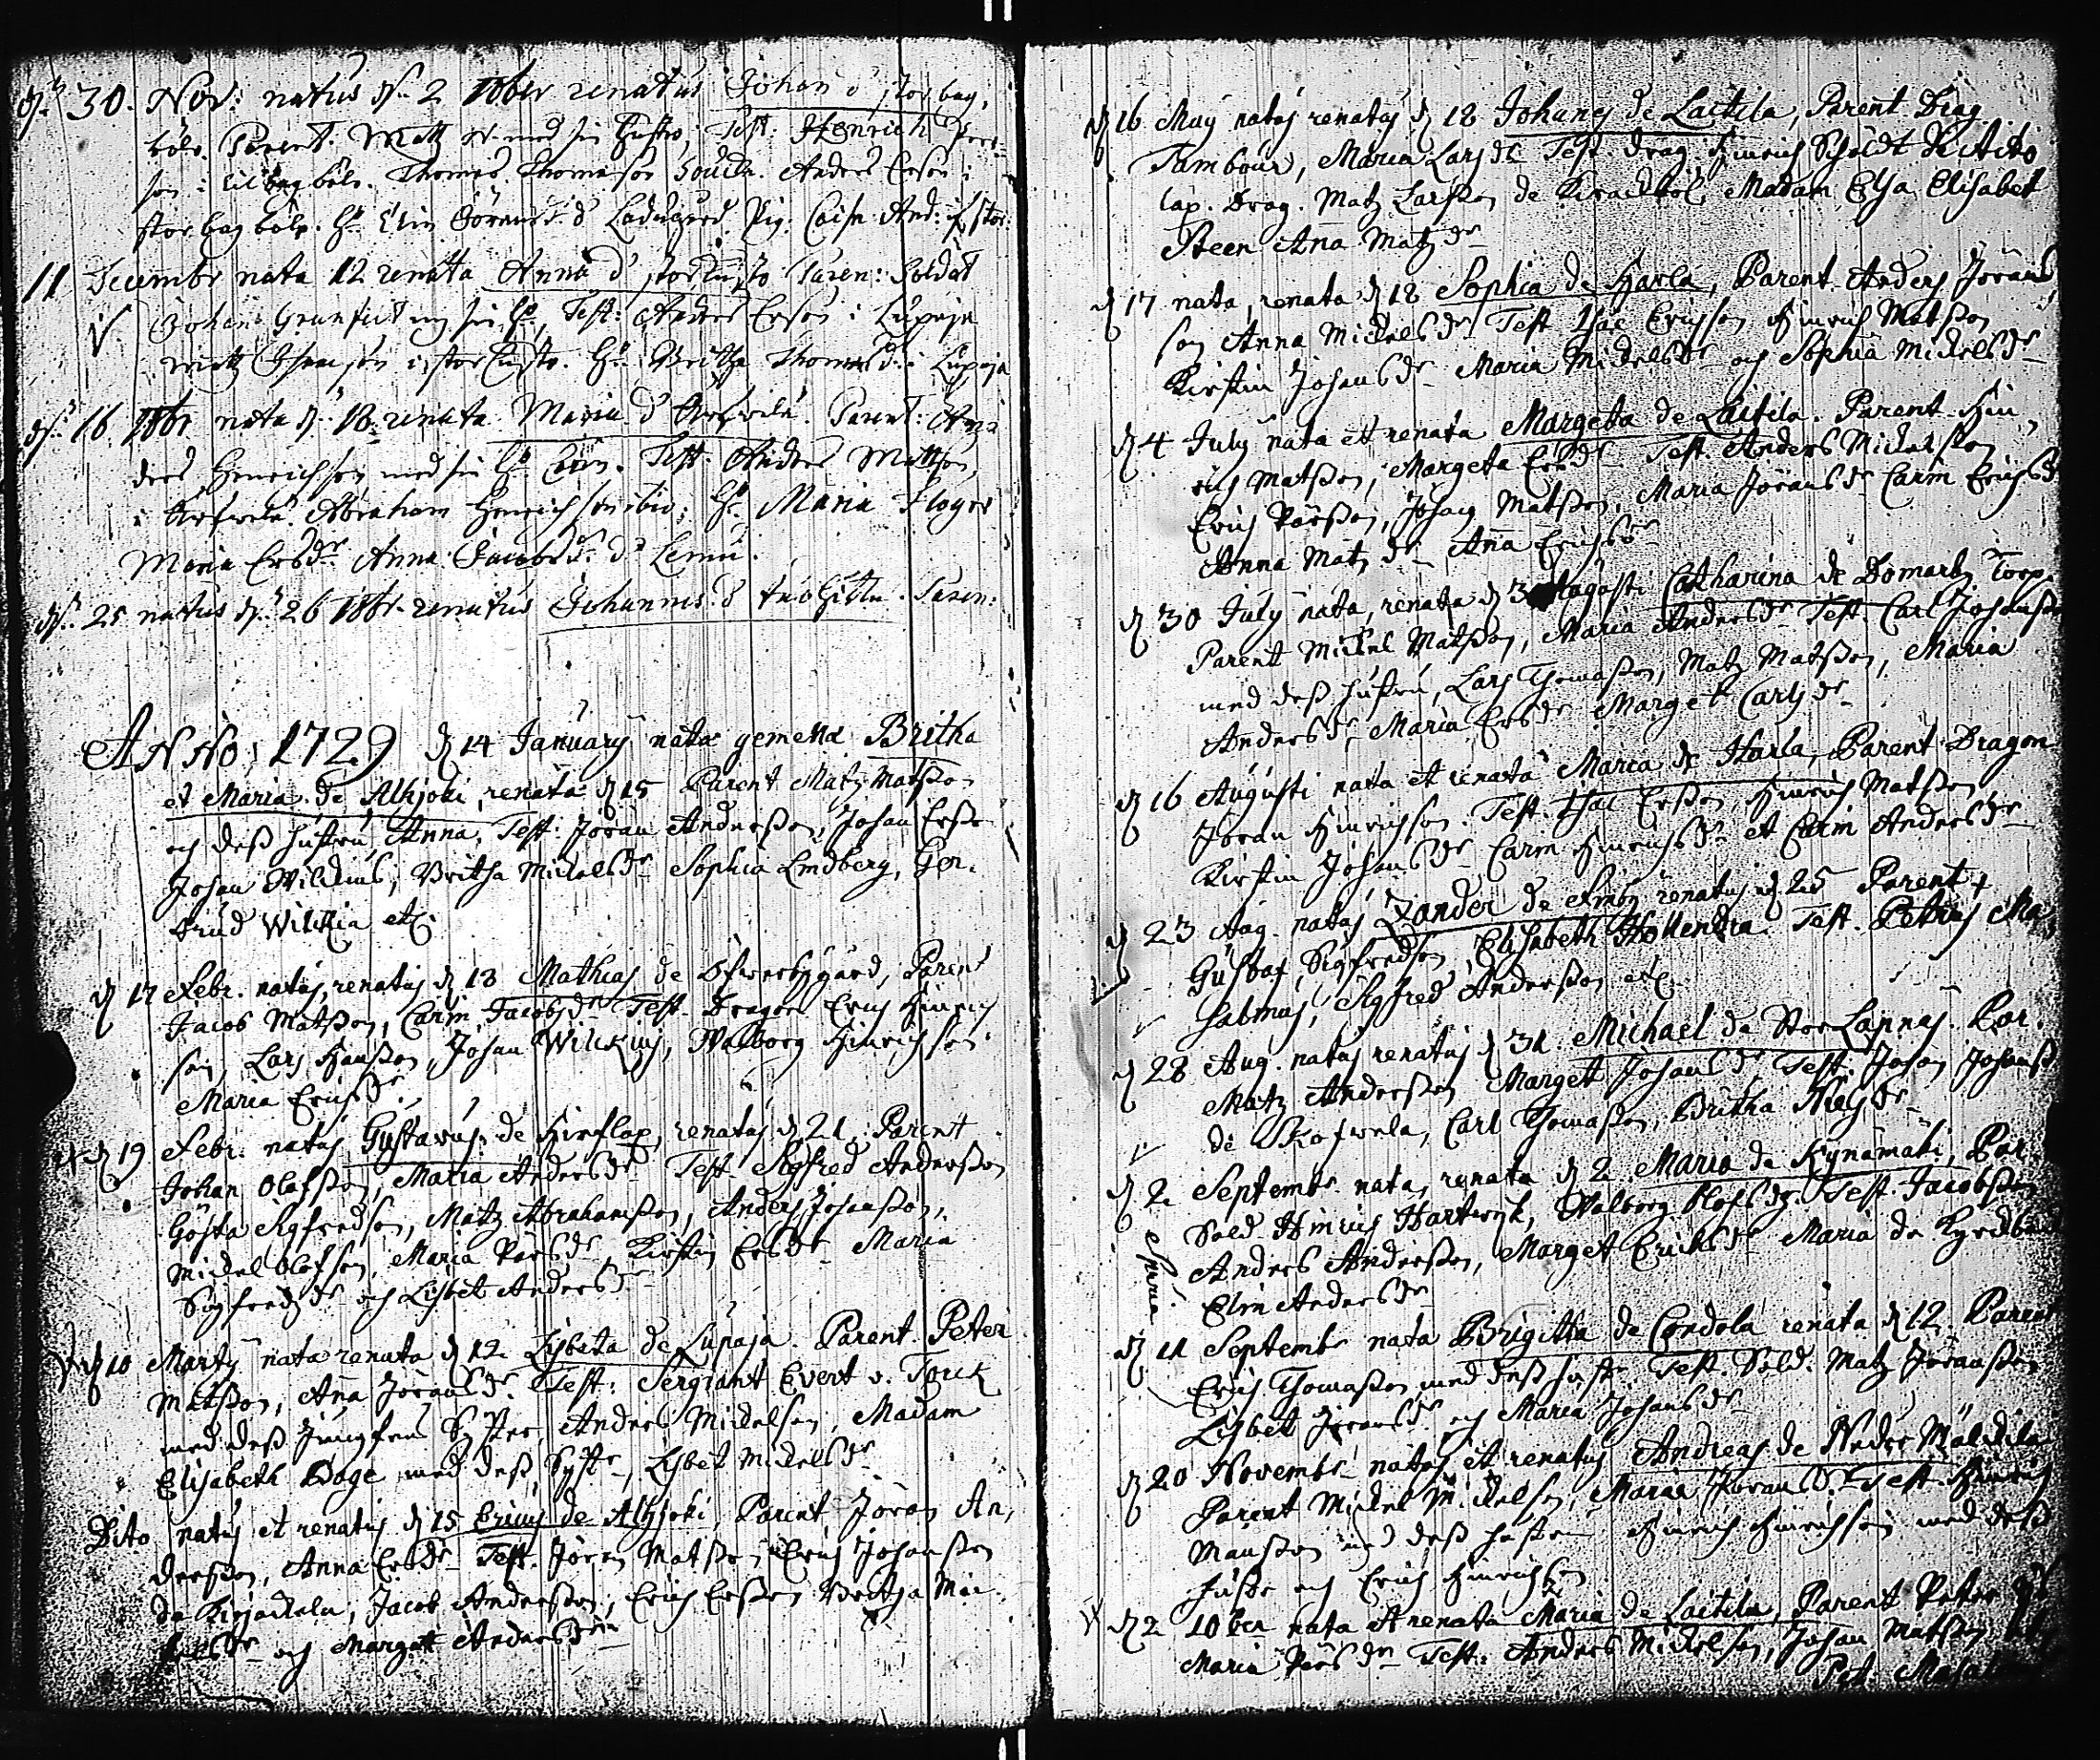 30. Nov: natus d. 2 10ber renatus Johan d' storbag,
böle. Parent. Matz med sin Hustro; Test: Henrich Pers
son i lillbagböle. Thomas Thomasson Anders Erson i
storbagböle. H. Elin d' Ladugård. Pig. Caisa And: if stor:
11 Decembr nata 12 renata Anna d' Paren: Soldat
Johan Test: Anders Erson i Lupaja
Matz H. Britha Thomasd. i Lupaja
d. 16 10br nata d. 18 renata Maria d' Parent: An
ders Henrichson med sin H. Test: Anders Mattson
i Abraham Henrichson ibid; H. Maria Floger
Maria Ersdr Anna Jacobsd. d' Lemu.
d. 25 natus d. 26 10br renatus Johannes d' Paren:
ANNO: 1729 d 14 January nata gemella Britha
et Maria de Alhjoki, renata d 15 Parent Matz Matsson
och dess hustru, Anna, Test: Jöran Andersson, Johan Ersson
Johan Wilckius, Britha Mickelsdr Sophia Lindberg, Ger,
trud Wilckia etc.
d 17 Febr. natus, renatus d 18 Mathias de Öfwerbygård, Parent
Jacob Matsson, Carin Jacobsdr Test. Dragon Erich Hinrich
son, Lars Hansson, Johan Wilckius, Walborg Hinrichson
Maria Erichsdr.
d 19 Febr. natus Gustavus de Kirflax, renatus d 21. Parent
Johan Olofsson, Maria Andersdr Test. Sigfred Andersson
Gösta Sigfredson, Matz Abrahamsson, Anders Johansson,
Mickel Olofson, Maria Pärsdr, Kirstin Ersdr Maria
Sigfredzdr och Lisbet Andersdr
d 10 Marty nata renata d 12 Lisbeta de Lupaja. Parent. Peter
Matsson, Ana Jöransdr. Test: Sergiant Evert v. Torck
med dess Jungfru Syster, Anders Mickelson, Madam
Elisabeth Boge med dess Systr, Lisbet Mickelsdr
Dito natus et renatus d 15 Ericus de Alhjoki, Parent Jöran An,
dersson, Anna Ersdr Test. Jöran Matsson, Erich Johansson
de Jacob Andersson, Erich Ersson Britha Mic
kelsdr och Marget Andersdr
d 16 May natus renatus d 18 Johanes de Laitila, Parent Drag
Tambour, Maria Larsdr Test Drag. Hinrich Schildt de Aito
lax. Drag. Matz Larsson de Madam Elsa Elisabet
Steen Ana Matzdr
d 17 nata, renata d 18 Sophia de Harla, Parent Anders Jörans
son Anna Mickelsdr Test Isac Ericsson Hinrich Matsson
Kirstin Johansdr Maria Mickelsdr och Sophia Mickelsdr
d 4 July nata et renata Margeta de Laitila. Parent Hin,
rich Matsson, Margeta Ersdr Test. Anders Mickelsson
Erich Pärsson, Johan Matsson, Maria Jöransdr Carin Erichsdr
Anna Matzdr Ana Erichsdr
d 30 July nata, renata d 3 Augusti Catharina de Domarby Torp.
Parent Mickel Matsson, Maria Andersdr Test. Carl Johansson
med dess hustru, Lars Thomasson, Matz Matsson, Maria
Andersdr Maria Ersdr Marget Carlsdr
d 16 Augusti nata et renata Maria de Harla, Parent Dragon
Jöran Hinrichson. Test. Isac Ersson, Hinrich Matsson
Kirstin Johansdr Carin Hinrichsdr et Carin Andersdr
d 23 Aug. natus Zander de renatus d 25 Parent
Gustaf Sigfredson, Elisabeth Hollendra. Test. Petrus Ma,
Salmus, Sigfred Andersson etc.
d 28 Aug. natus renatus d 31 Michael de Stor Lapnäs. Par.
Matz Andersson Marget Johansdr Test. Johan Johansson
de Skofwela, Carl Thomasson, Britha
d 2 Septembr nata, renata d 2. Maria de Kynämäki, Par.
Sold. Hinrich Hartwyk, Walborg Olofsdr. Test. Jacobsson
Anders Andersson, Marget Erichsdr Maria de
Elin Andersdr
Spuria.
d 11 Septembr nata Brigitta de Cordola renata d 12. Parent
Erich Thomasson med dess hustr. Test. Sold. Matz Jöransson
Lisbet Jöransdr och Maria Johansdr
d 20 Novembr natus et renatus Andreas de Neder Mälckilä
Parent Mickel Mickelson, Maria Jöransdr. Test. Hinrich
Mansson med dess hustru Hinrich Hinrichson med dess
hustr och Erich Hinrichson
d 2 10ber nata et renata Maria de Laitila, Parent Peter
Maria Pärsdr Test: Anders Mickelson, Johan Matsson